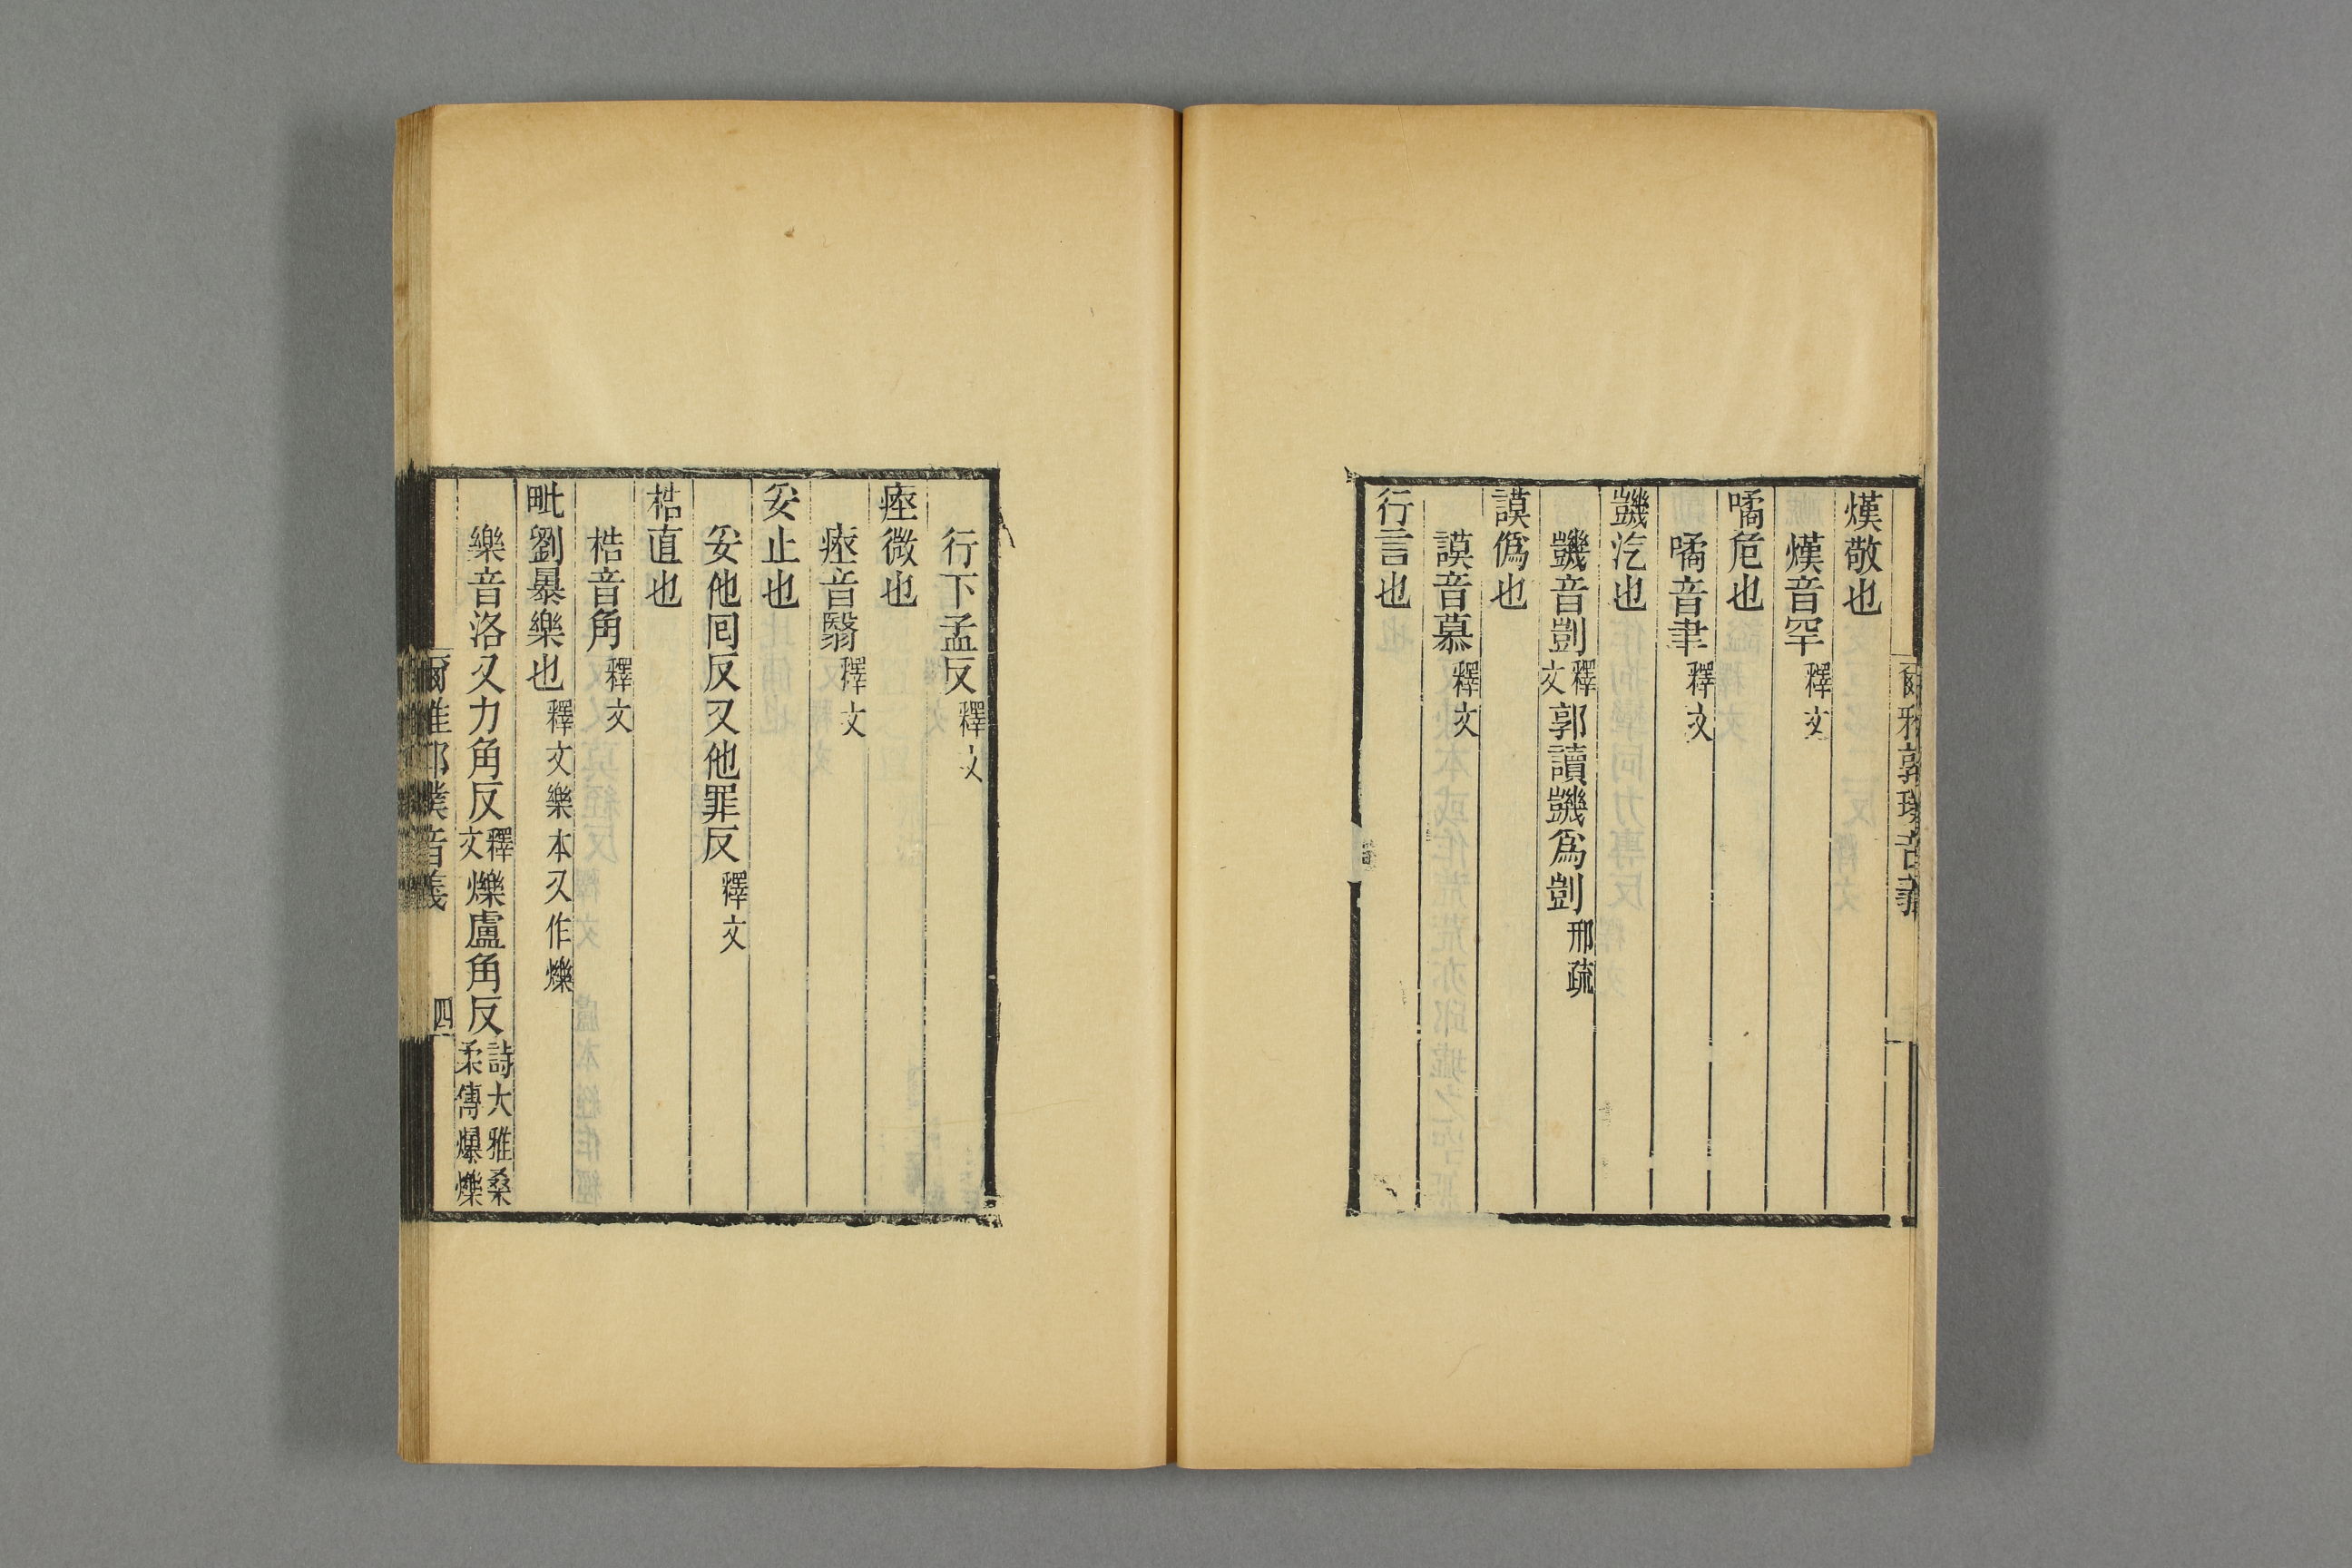 爾雅郭璞音義
熯敬也
熯音罕釋文
噊危也
噊音聿釋文
蟣汔也
蟣音剴釋文郭讀蟣爲剴邢疏
謨僞也
謨音慕釋文
行言也
行下孟反釋文
瘞微也
瘞音翳釋文
妥止也
妥他回反又他罪反釋文
梏直也
梏音角釋文
毗劉暴樂也釋文樂本又作爍
樂音洛又力角反釋文爍盧角反詩大雅桑柔傳爆爍
爾雅郭璞音義 四